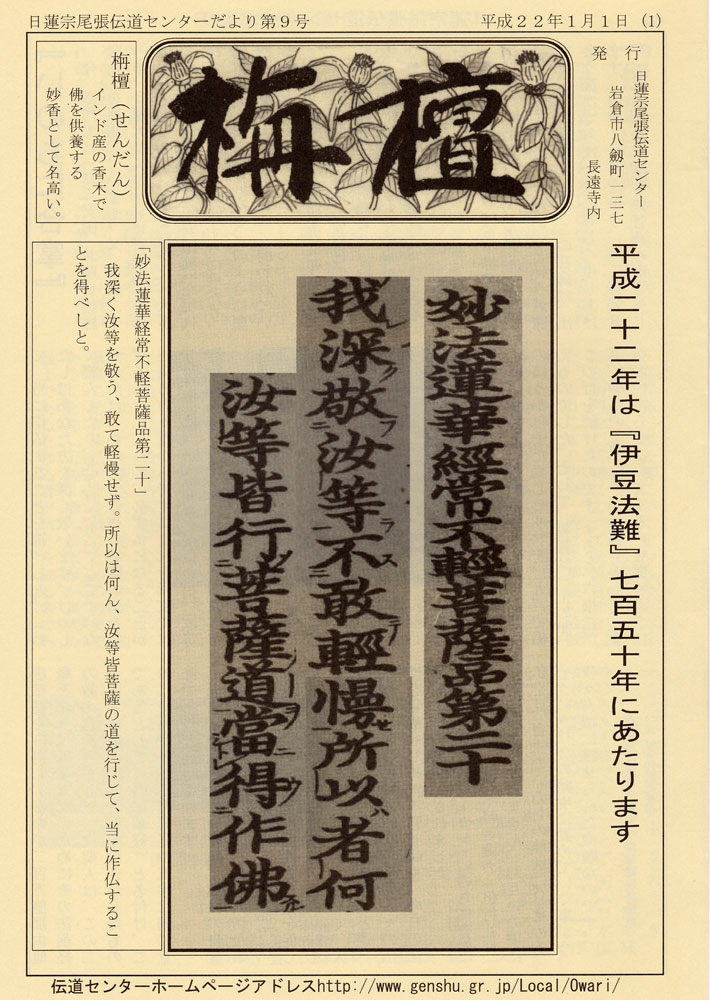 日蓮宗尾張伝道センターだより第９号
平成２２年１月１日（1）
発行
日蓮宗尾張伝道センター
岩倉市八剱町一三七
長遠寺内
栴檀
栴檀（せんだん）
インド産の香木で
佛を供養する
妙香として名高い。
平成二十二年は『伊豆法難』七百五十年にあたります
妙法蓮華經常不輕菩薩品第二十
我深敬汝等不敢輕慢所以者何
汝等皆行菩薩道當得作佛
「妙法蓮華経常不軽菩薩品第二十」
我深く汝等を敬う、敢て軽慢せず。所以は何ん、汝等皆菩薩の道を行じて、当に作仏するこ
とを得べしと。
伝道センターホームページアドレスhttp://www.genshu.gr.jp/Local/Owari/